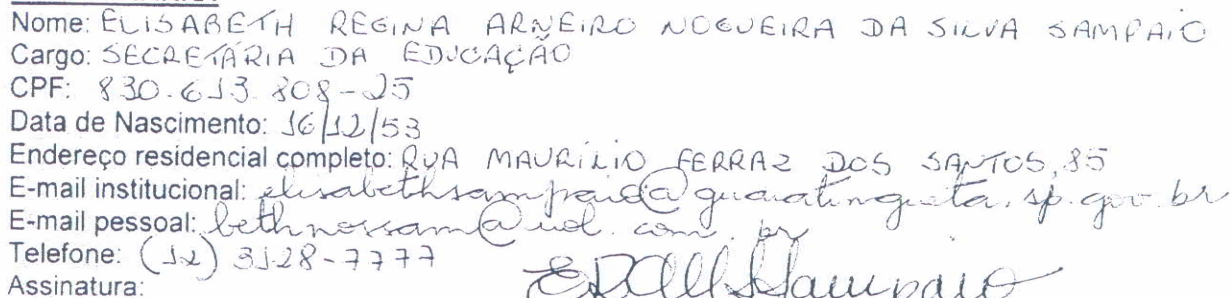 Nome: ELISABETH REGINA ARNEIRO NOGUEIRA DA SILVA SAMPAIO
Cargo: SECRETÁRIA DA EDUCAÇÃO
CPF: 830.613.808-25
Data de Nascimento: 16/12/53
Endereço residencial completo: RUA MAURILIO FERRAZ DOS SANTOS, 85
E-mail institucional: elisabethsampaio@guaratingueta.sp.gov.br
E-mail pessoal: bethnossam@uol.com.br
Telefone: (12) 3128-7777
Assinatura: